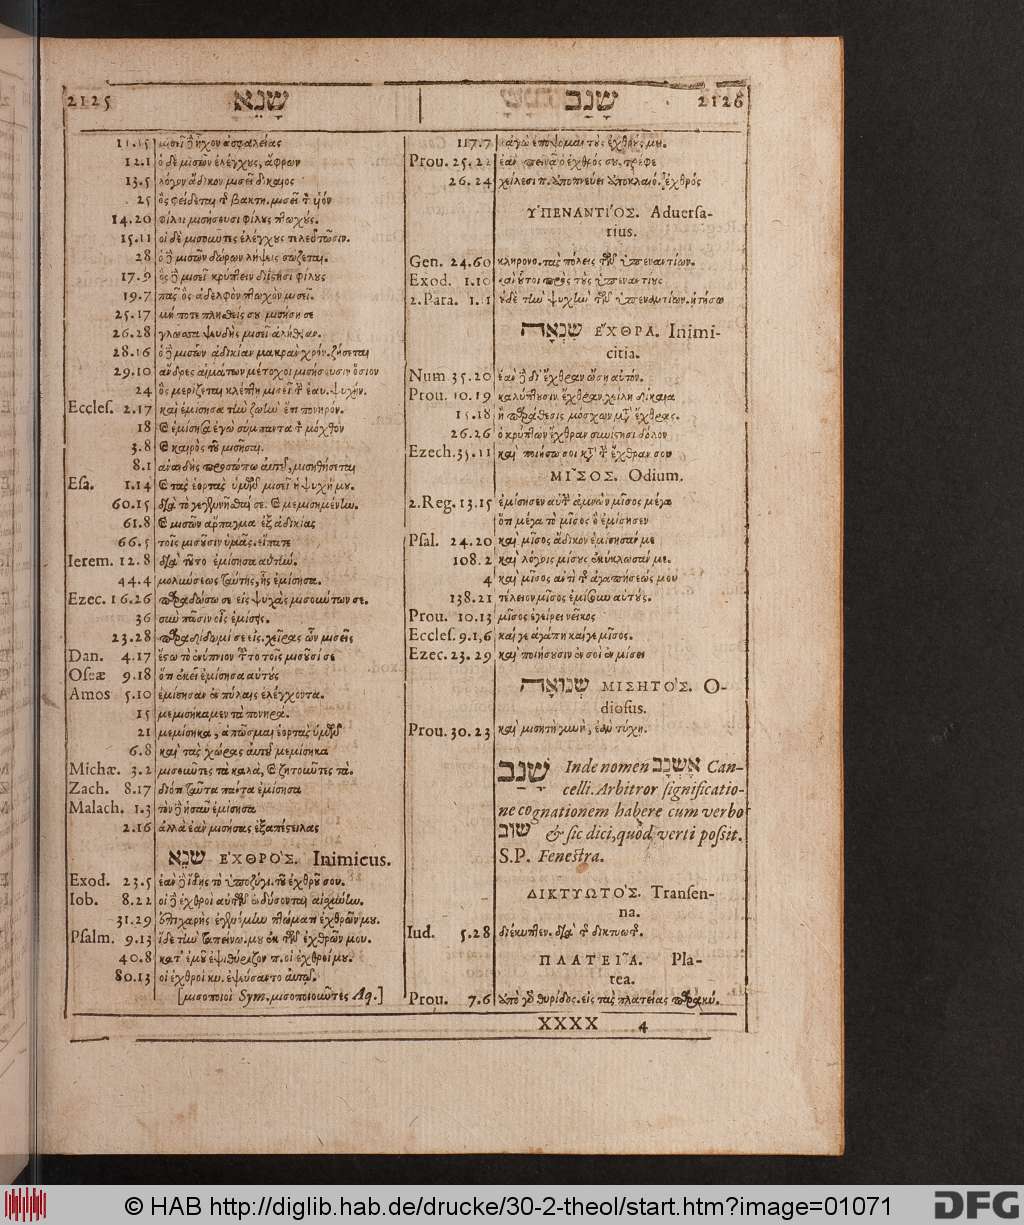 2125 שָׂנֵא
שָׂנַב 2126
11.15 μισεῖ ἦχον ἀσφαλείας
12.1 ὁ δὲ μισῶν ἐλέγχους, ἄφρων
13.5 λόγον ἄδικον μισεῖ δίκαιος
25 ὃς φείδεται τ βακτη. μισεῖ τ υἱόν
14.20 φίλοι μισήσουσι φίλους πτωχούς.
15.11 οἱ δὲ μισοῦντες ἐλέγχους τελευτῶσιν.
28 ὁ μισῶν δώρων λήψεις σώζεται.
17.9 ὃς μισεῖ κρύπτειν διίστησι φίλους
19.7 πᾶς ὃς ἀδελφὸν πτωχὸν μισεῖ.
25.17 μή ποτε πλησθείς σου μισήσῃ σε
26.28 γλῶσσα ψευδὴς μισεῖ ἀλήθειαν.
28.16 ὁ μισῶν ἀδικίαν μακρὸν χρόν. ζήσεται
29.10 ἄνδρες αἱμάτων μέτοχοι μισήσουσιν ὅσιον
24 ὃς μερίζεται κλέπτῃ μισεῖ τ ἑαυ. ψυχήν.
Eccles. 2.17 καὶ ἐμίσησα τὴν ζωὴν ἔτι πονηρόν.
18 καὶ ἐμίσησα ἐγὼ σύμπαντα τ μόχθον
3.8 καὶ καιρὸς τοῦ μισῆσαι.
8.1 ἀναιδὴς προσώπῳ αὐτοῦ, μισηθήσεται
Esa. 1.14 καὶ τὰς ἑορτὰς ὑμῶν μισεῖ ἡ ψυχή μου.
60.15 διὰ τὸ γεγενῆσθαί σε. καὶ μεμισημένην.
61.8 καὶ μισῶν ἅρπαγμα ἐξ ἀδικίας
66.5 τοῖς μισοῦσιν ὑμᾶς. εἴπατε
Ierem. 12.8 διὰ τοῦτο ἐμίσησα αὐτήν.
44.4 μολύνσεως ταύτης, ἧς ἐμίσησα.
Ezec. 16.26 παραδώσω σε εἰς ψυχὰς μισούντων σε.
36 σὺν πᾶσιν οἷς ἐμίσεις.
23.28 παραδίδωμί σε εἰς. χεῖρας ὧν μισεῖς
Dan. 4.17 ἔστω τὸ ἐνύπνιον τ το τοῖς μισοῦσί σε
Oseæ 9.18 ὅτι ἐκεῖ ἐμίσησα αὐτούς
Amos 5.10 ἐμίσησαν ἐν πύλαις ἐλέγχοντα.
15 μεμισήκαμεν τὰ πονηρά.
21 μεμίσηκα, ἀπῶσμαι ἑορτὰς ὑμῶν
6.8 καὶ τὰς χώρας αὐτοῦ μεμίσηκα
Michæ. 3.2 μισοῦντες τὰ καλά, καὶ ζητοῦντες τὰ.
Zach. 8.17 διότι ταῦτα πάντα ἐμίσησα
Malach. 1.3 τὸν ἡσαῦ ἐμίσησα
2.16 ἀλλὰ ἐὰν μισήσας ἐξαπέστειλας
שׂנֵא ΕΧΘΡΟΣ. Inimicus.
Exod. 23.5 ἐὰν ἴδῃς τὸ ὑποζύγι. τοῦ ἐχθροῦ σου.
Iob. 8.22 οἱ ἐχθροὶ αὐτῶν ἐνδύσονται αἰσχύνην.
31.29 ἐπιχαρὴς ἐγενόμην πτώματι ἐχθρῶν μου.
Psalm. 9.13 ἴδε τὴν ταπείνω. μου ἐκ τῶν ἐχθρῶν μου.
40.8 κατ' ἐμοῦ ἐψιθύριζον π. οἱ ἐχθροί μου.
80.13 οἱ ἐχθροὶ κυ. ἐψεύσαντο αὐτῷ.
[μισοποιοί Sym. μισοποιοῦντες Aq.]
117.7 κἀγὼ ἐπόψομαι τοὺς ἐχθρούς μου.
Prou. 25.22 ἐὰν πεινᾷ ὁ ἐχθρός σου, τρέφε
26.24 χείλεσι π. ἀποκλαιό. ἐχθρός
ΥΠΕΝΑΝΤΙΌΣ. Aduersa-
rius.
Gen. 24.60 κληρονο. τὰς πόλεις τῶν ὑπεναντίων.
Exod. 1.10 καὶ οὗτοι πρὸς τοὺς ὑπεναντίους
2.Para. 1.11 οὐδὲ τὴν ψυχὴν τῶν ὑπεναντίων. ᾐτήσω
שִׂנְאָה ΕΧΘΡΑ. Inimi-
citia.
Num. 35.20 ἐὰν δι' ἔχθραν ὤσῃ αὐτόν.
Prou. 10.19 καλύπτουσιν ἔχθραν χείλη δίκαια
15.18 ἢ παράθεσις μόσχων μετ' ἔχθρας.
26.26 ὁ κρύπτων ἔχθραν συνίστησι δόλον
Ezech. 35.11 καὶ ποιήσω σοι κατ' τ ἔχθραν σου
ΜΙΣΟΣ. Odium.
2.Reg. 13.15 ἐμίσησεν αὐτ ἀμνὼν μῖσος μέγα
ὅτι μέγα τὸ μῖσος ὃ ἐμίσησεν
Psal. 24.20 καὶ μῖσος ἄδικον ἐμίσησάν με
108.2 καὶ λόγοις μίσους ἐκύκλωσάν με.
4 καὶ μῖσος ἀντὶ τ ἀγαπήσεώς μου
138.21 τέλειον μῖσος ἐμίσουν αὐτούς.
Prou. 10.13 μῖσος ἐγείρει νεῖκος
Eccles. 9.1,6 καίγε ἀγάπη καίγε μῖσος.
Ezec. 23.29 καὶ ποιήσουσιν ἐν σοὶ ἐν μίσει
שְׂנוּאָה ΜΙΣΗΤΟΣ. O-
diosus.
Prou. 30.23 καὶ μισητὴ γυνή, ἐὰν τύχῃ.
שָׂנַב Inde nomen אֶשְׂנָב Can-
celli. Arbitror significatio-
ne cognationem habere cum verbo
שׁוּב & sic dici, quod verti possit.
S.P. Fenestra.
ΔΙΚΤΥΩΤΟΣ. Transen-
na.
Iud. 5.28 διέκυπτεν. διὰ τ δικτυωτ.
ΠΛΑΤΕΙΑ. Pla-
tea.
Prou. 7.6 ἀπὸ γὰρ θυρίδος. εἰς τὰς πλατείας παρακύ.
XXXX 4
© HAB http://diglib.hab.de/drucke/30-2-theol/start.htm?image=01071
DFG